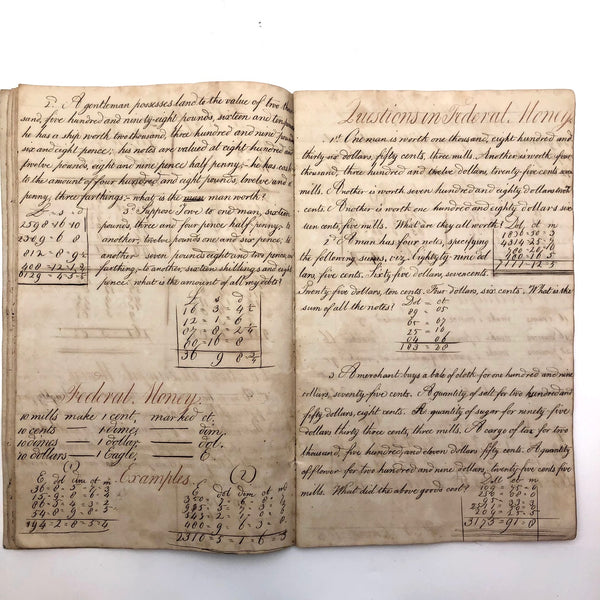 2. A gentleman possesses land to the value of two thou
sand, five hundred and ninety-eight pounds, sixteen and ten pence
he has a ship worth two thousand, three hundred and nine pounds
six and eight pence; his notes are valued at eight hundred and
twelve pounds, eight and nine pence half penny;- he has cash
to the amount of four hundred and eight pounds, twelve and a
penny, three farthings;- what is the man worth?
£ = s = d
2598 = 16 = 10
2309 = 6 = 8
812 = 8 = 9½
408 = 12 = 1¾
3d Suppose I owe to one man, sixteen
pounds, three and four pence half penny, to
another, twelve pounds one and six pence; to
another seven pounds eight and two pence
farthing;- to another, sixteen shillings and eight
pence; what is the amount of all my debts?
£ s d
16 = 3 = 4½
12 = 1 = 6
07 = 8 = 2¼
00 = 16 = 8
36 9 8¾
Federal Money.
10 mills make 1 cent, marked ct.
10 cents —— 1 dime, —— dim.
10 dimes — 1 dollar, —— dol.
10 dollars — 1 Eagle, —— E.
Examples.
(1)
E dol dim ct m
194 = 2 = 8 = 5 = 4
(2)
E dol dim ct m
2310 = 5 = 1 = 6 = 3
Questions in Federal Money.
1st One man is worth one thousand, eight hundred and
thirty six dollars, fifty cents, three mills. Another is worth four
thousand, three hundred and twelve dollars, twenty-five cents
mills. Another is worth seven hundred and eighty dollars
cents. Another is worth one hundred and eighty dollars six
teen cents, five mills. What are they all worth?
Dol ct m
2d A man has four notes, specifying
the following sums, viz. Eighty-nine dol
lars, five cents. Sixty five dollars, seven cents.
Twenty five dollars, ten cents. Four dollars, six cents. What is the
sum of all the notes?
Dol = ct
89 = 05
65 = 07
25 = 10
04 = 06
183 = 28
3. A merchant buys a bale of cloth for one hundred and nine
dollars, seventy-five cents. A quantity of salt for two hundred and
fifty dollars, eight cents. A quantity of sugar for ninety five
dollars thirty three cents, three mills. A cargo of tax for two
thousand, five hundred, and eleven dollars fifty cents. A quantity
of flower for two hundred and nine dollars, twenty five cents five
mills. What did the above goods cost?
Dol ct m
3175 = 91 = 8